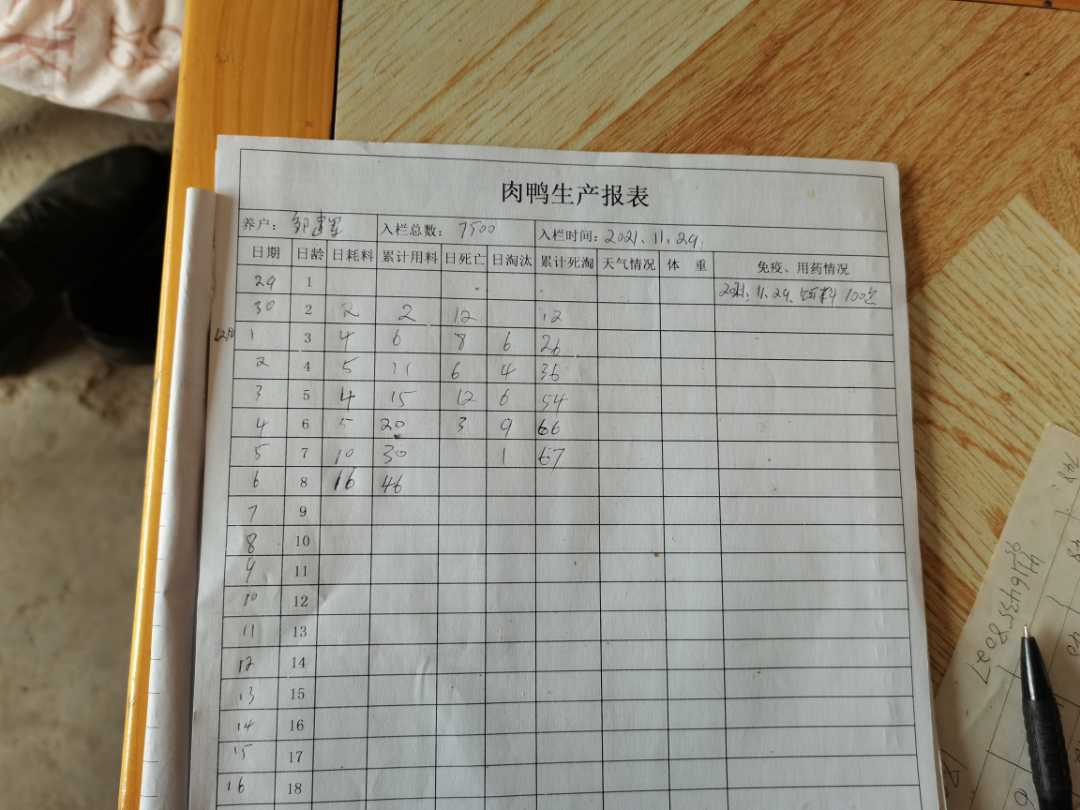 肉鸭生产报表
养户: 入栏总数: 7500 入栏时间: 2021.11.29.
日期 日龄 日耗料 累计用料 日死亡 日淘汰 累计死淘 天气情况 体 重 免疫、用药情况
29 1 2021.11.29. 料 100包
30 2 2 2 12 12
12月 1 3 4 6 8 6 26
2 4 5 11 6 4 36
3 5 4 15 12 6 54
4 6 5 20 3 9 66
5 7 10 30 1 67
6 8 16 46
7 9
8 10
9 11
10 12
11 13
12 14
13 15
14 16
15 17
16 18